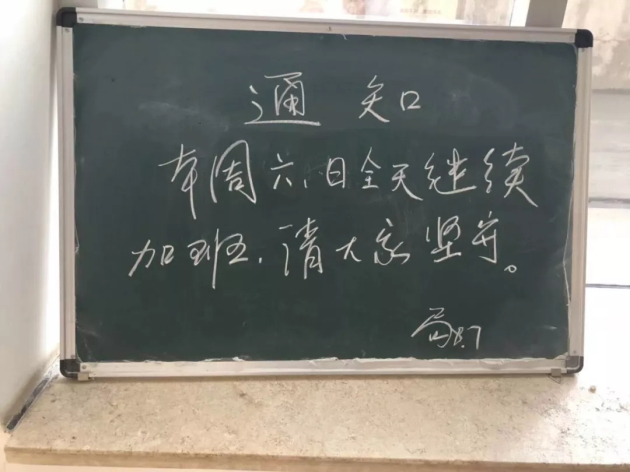 通知
本周六、日全天继续
加班,请大家坚守。
8.7